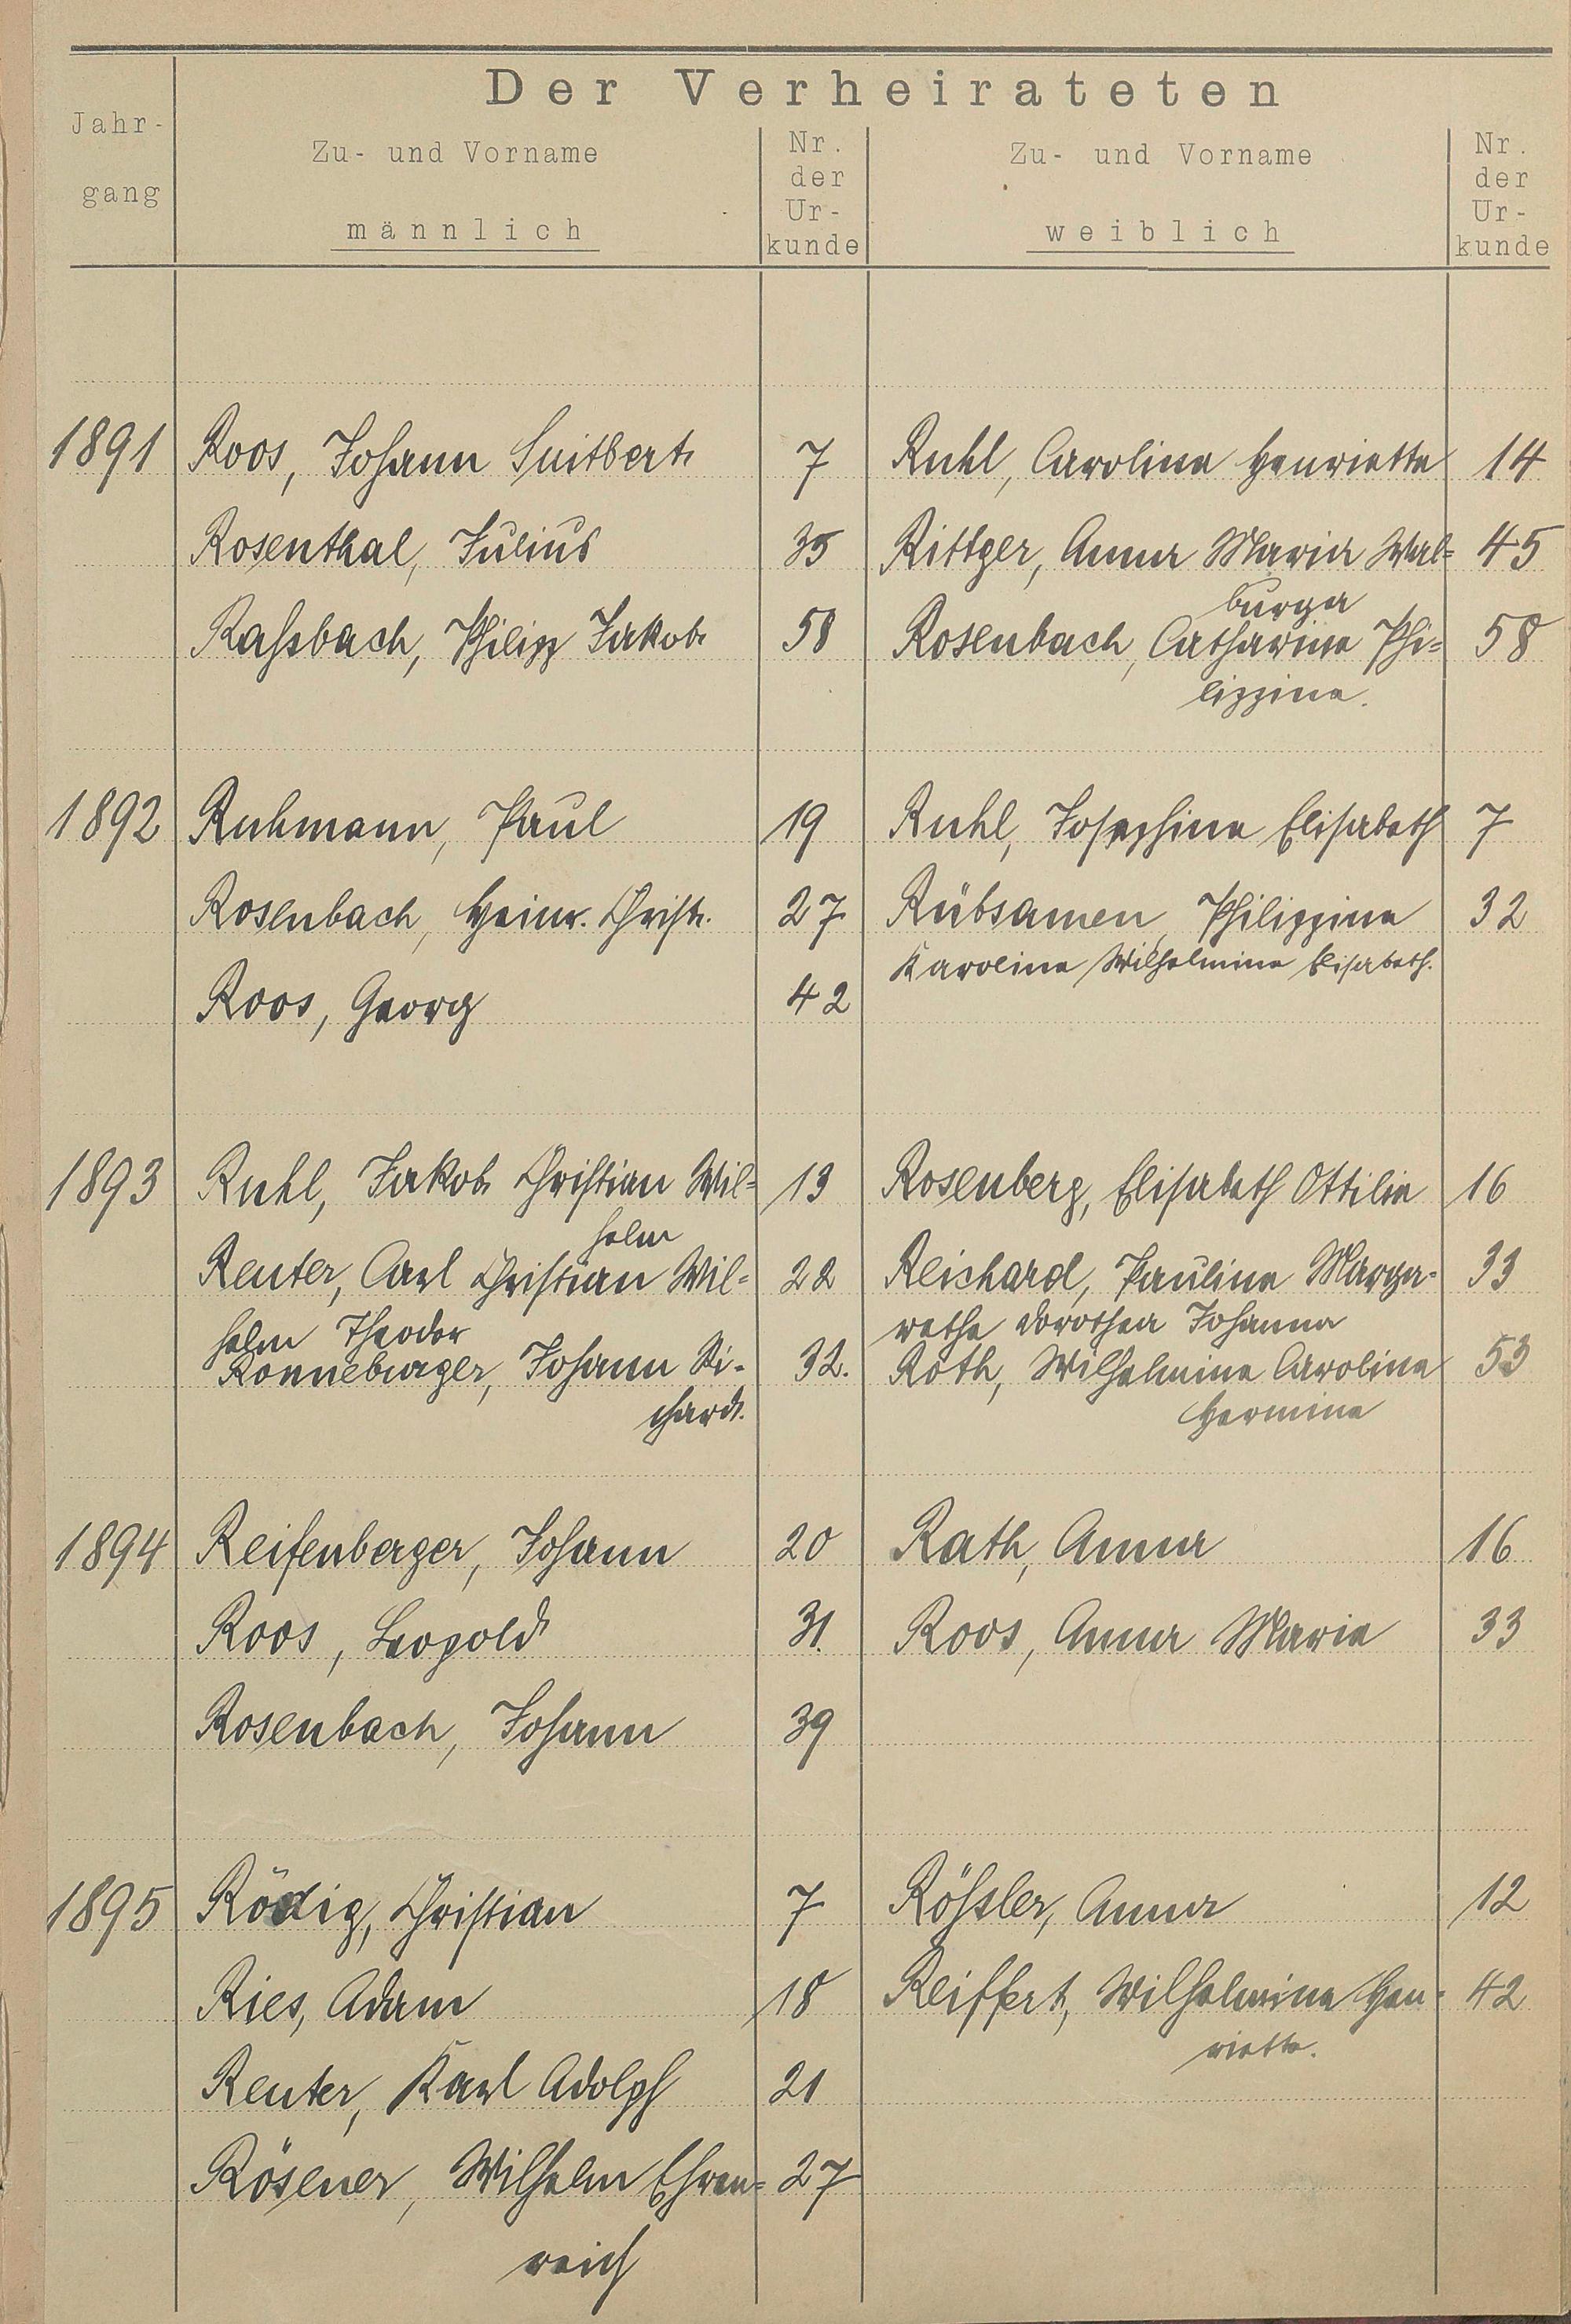 Der Verheirateten
Jahr-
gang
Zu- und Vorname
männlich
Nr.
der
Ur-
kunde
Zu- und Vorname
weiblich
Nr.
der
Ur-
kunde
1891 Roos, Johann Suitbert 7 Ruhl, Caroline Henriette 14
Rosenthal, Julius 35 Rittger, Anna Maria Wal= 45
burga
Raßbach, Philipp Jakob 58 Rosenbach, Catharine Phi= 58
lippine.
1892 Ruhmann, Paul 19 Ruhl, Josephine Elisabeth 7
Rosenbach, Heinr. Christ. 27 Rübsamen, Philippine 32
Karoline Wilhelmine Elisabeth.
Roos, Georg 42
1893 Ruhl, Jakob Christian Wil= 13 Rosenberg, Elisabeth Ottilie 16
helm
Reuter, Carl Christian Wil= 22 Reichard, Pauline Marga- 33
helm Theodor rethe Dorothea Johanna
Ronneburger, Johann Ri- 32. Roth, Wilhelmine Caroline 53
chard. Hermine
1894 Reifenberger, Johann 20 Rath, Anna 16
Roos, Leopold 31. Roos, Anna Marie 33
Rosenbach, Johann 39
1895 Rödig, Christian 7 Rößler, Anna 12
Ries, Adam 18 Reiffert, Wilhelmine Hen- 42
riette.
Reuter, Karl Adolph 21
Rösener, Wilhelm Ehren= 27
reich